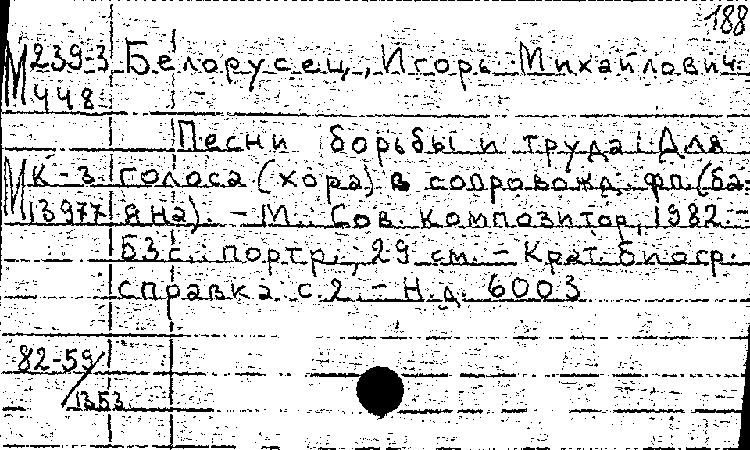 188
М 239-3 Белорусец, Игорь Михайлович.
448
Песни борьбы и труда: Для
М К-3 голоса (хора) в сопровожд. фп. (ба-
13977 яна). - М.: Сов. композитор, 1982. -
63 с.: портр.; 29 см. - Крат. биогр.
справка с. 2. - Н.д. 6003
82-59/
1353